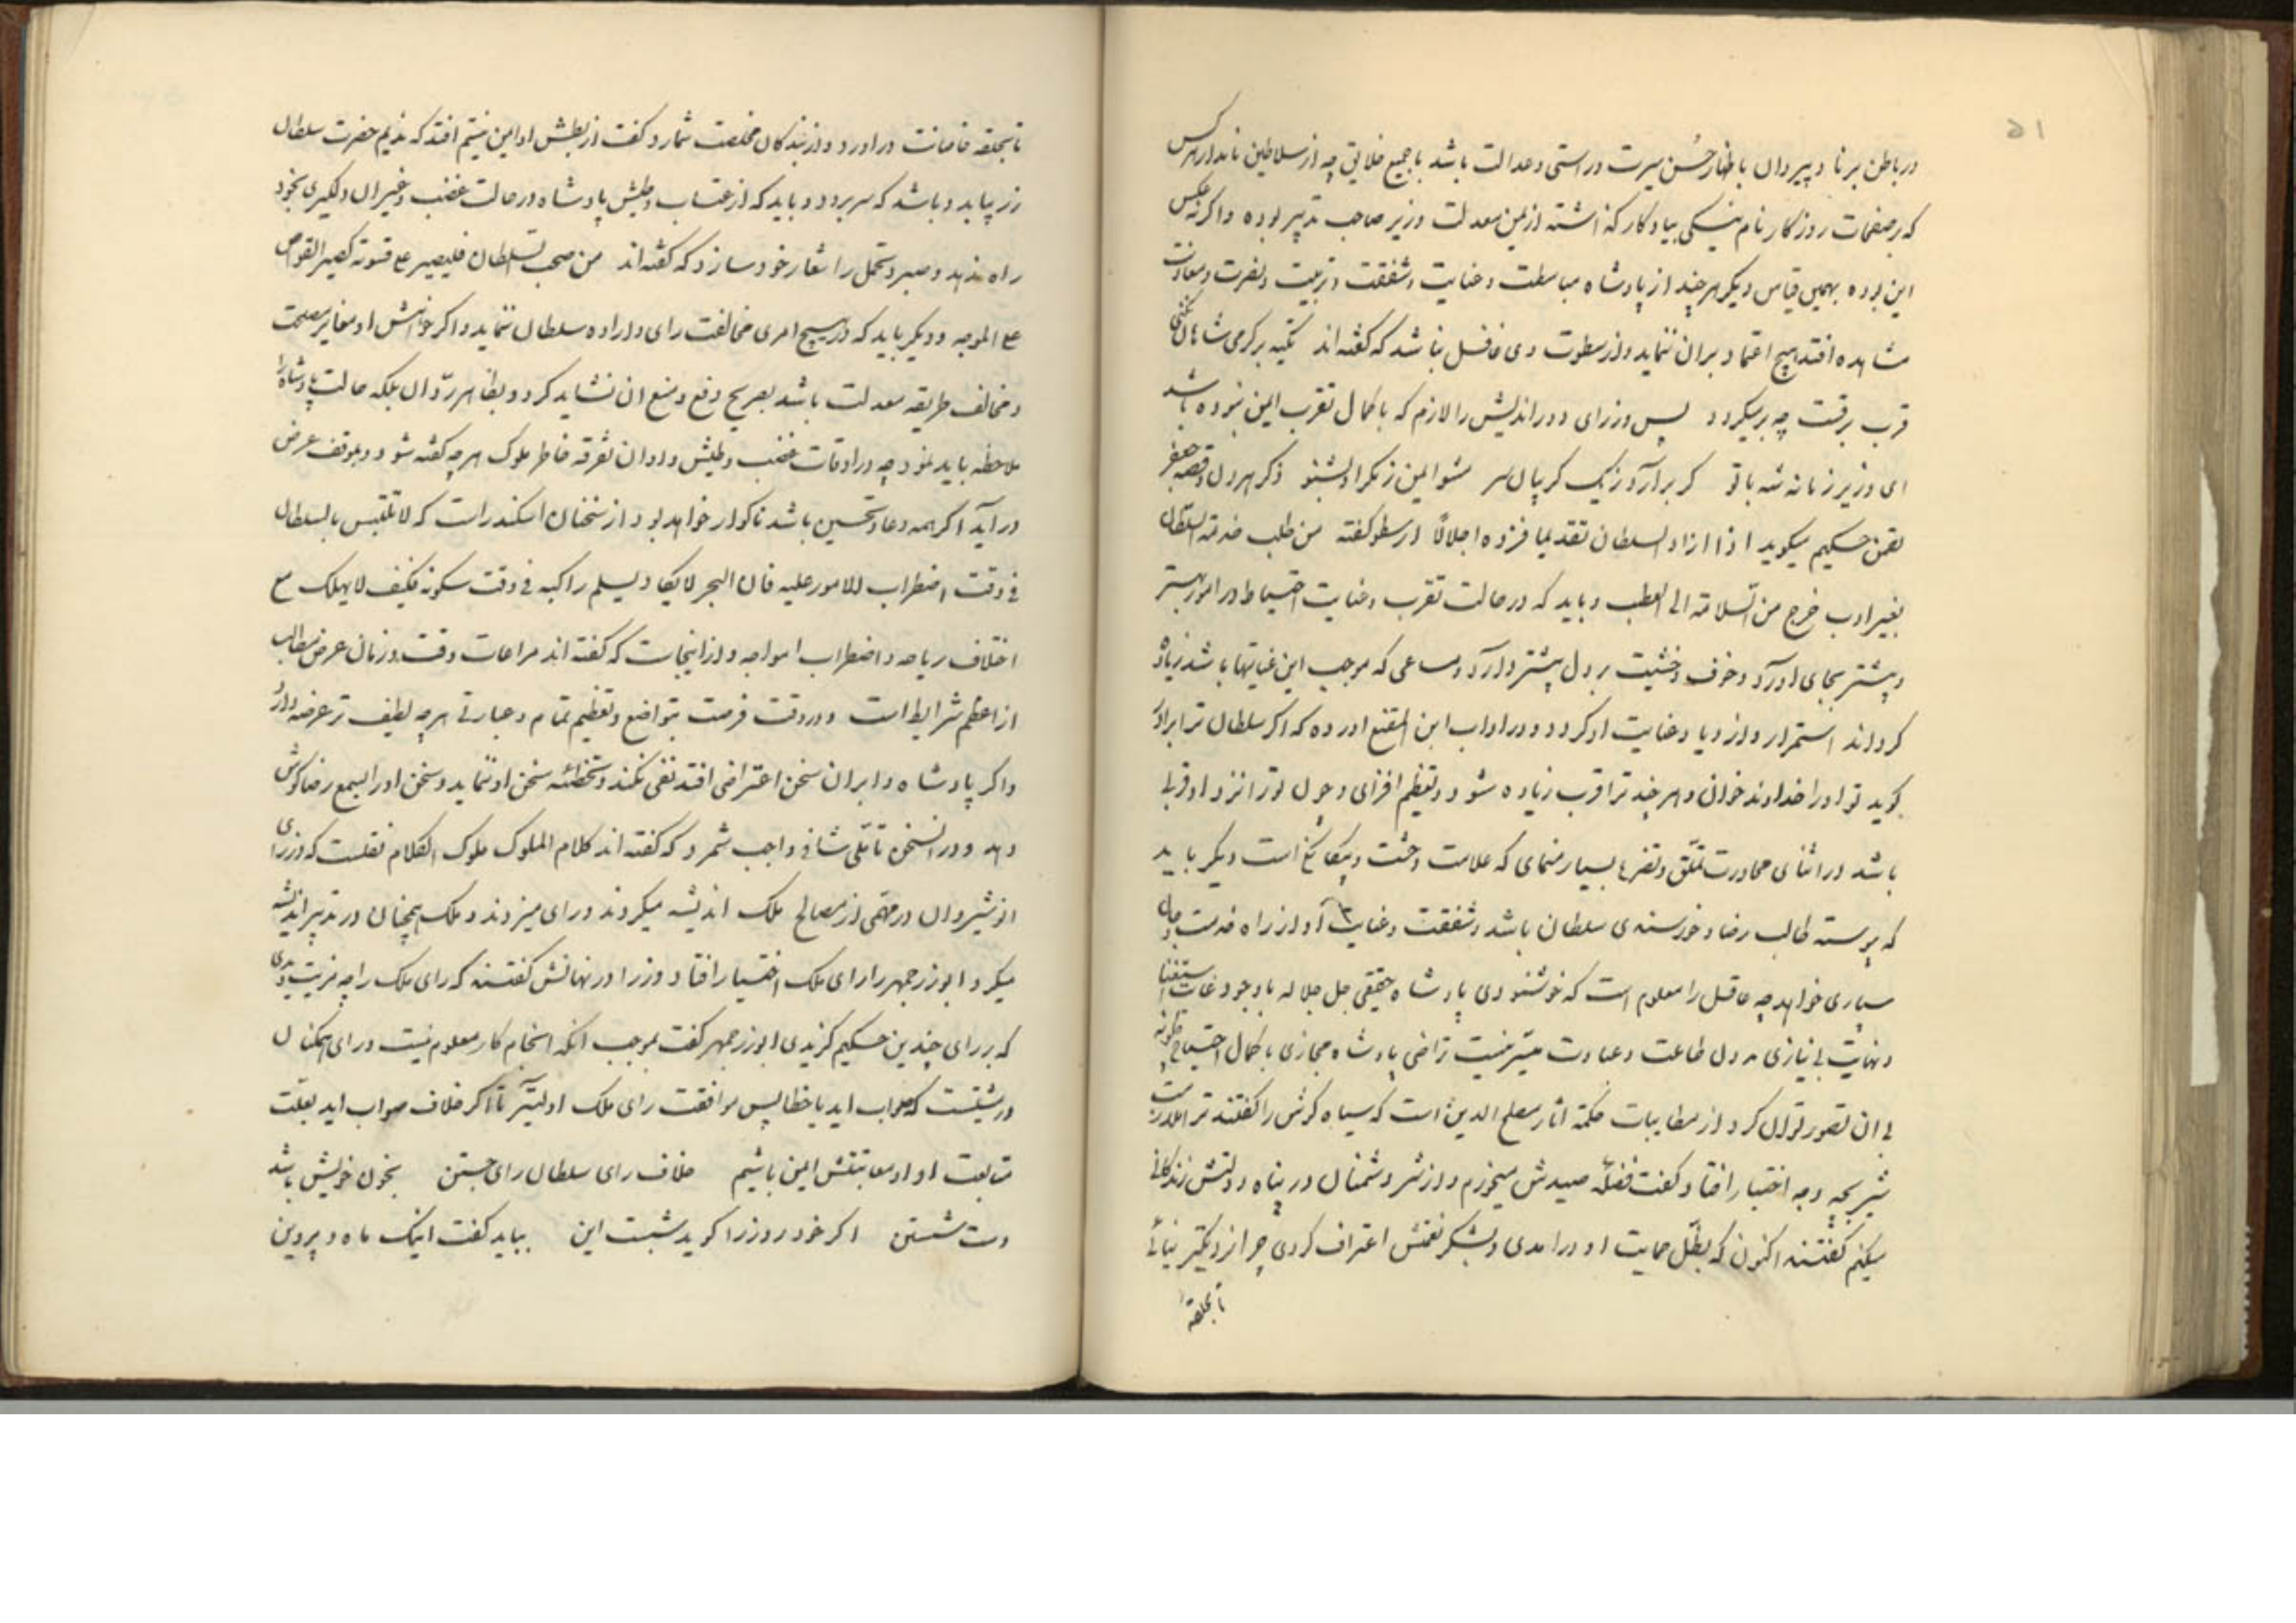 ۵۱
در باطن برنا و پیر و ان باظهار حُسن سیرت و راستی و عدالت باشد با جمیع خلایق چه از سلاطین نامدار هرکس
که بر صفحات روزکار نام نیکی بیادکار کذاشته از یمن معدلت وزیر صاحب تدبیر بوده و اکر نه عکس
این بوده بهمین قیاس دیکر هر چند از پادشاه مباسطت و عنایت و شفقت و تربیت و نصرت و معاونت
مشاهده افتد هیچ اعتماد بران ننماید و از سطوت وی غافل نباشد که کفته‌اند تکیه بر کرمی شاهان
قرب برقت چه بر میکردد پس وزرای دوراندیش را لازم که با کمال تقرب ایمن نبوده باشد
ای وزیر زمانه شه با تو کر برآرد زیک کریبان سر مشو ایمن ز مکر او بشنو ذکر هرون و قصه جعفر
لقمن حکیم میکوید اذا ازاد السلطان تقدیما فزده اجلالًا ارسطو کفته من طلب خدمة السلطان
بغیر ادب خرج من السلامة الی العطب و باید که در حالت تقرب و عنایت احتیاط در امور بیشتر
و پیشتر بجای اورد و خوف و خشیت بر دل بیشتر دارد و مساعی که موجب این غیاتها باشد زیاده
کرداند استمرار و ازدیاد عنایت او کردد و در اداب ابن المقنع اورده که اکر سلطان ترا برادر
کوید تو او را خداوند خوان و هر چند ترا قرب زیاده شود در تعظیم افزای و چون تو را نزد او قربی
باشد در اثنای محاورت تملّق و تضرع بسیار منمای که علامت وحشت و بیکانکی است دیکر باید
که پیوسته طالب رضا و خورسندی سلطان باشد و شفقت و عنایت او از راه خدمت و جان
سپاری خواهد چه عاقل را معلوم است که خوشنودی پادشاه حقیقی جل جلاله با وجود غایت استغنا
و نهایت بی نیازی بدون طاعت و عبادت میّسر نیست تراضی پادشاه مجازی با کمال احتیاج چکونه
بی ان تصور توان کرد از مطایبات حکمة اثار مصلح الدین است که سیاه کوش را کفتند ترا ملازمت
شیر بچه وجه اختیار افتاد کفت فضلهٔ صیدش میخورم و از شر دشمنان در پناه دولتش زندکانی
میکنم کفتند اکنون که بظّل حمایت او درامدی و بشکر نعمتش اعتراف کردی چرا نزدیکتر نیائی
تا بحلقه
تا بحلقه خاصانت در اورد و از بندکان مخلصت شمارد کفت از بطش او ایمن نیستم افتد که ندیم حضرت سلطان
زر بیابد و باشد که سر برود و باید که از عتاب و طیش پادشاه در حالت غضب و غیر ان دلکیری بخود
راه ندهد و صبر و تحمل را شعار خود سازد که کفته‌اند من صحب السلطان فلیصبر علی قسوته کصبر الغواص
علی الموجه و دیکر باید که در هیچ امری مخالفت رای و اراده سلطان ننماید و اکر خواهش او مغایر مصلحت
و مخالف طریقه معدلت باشد بصریح دفع و منع ان نشاید کرد و بظاهر ردّ ان بلکه حالت پادشاه را
ملاحظه باید نمود چه در اوقات غضب و طیش و اوان تفرقه خاطر ملوک هر چه کفته شود و بموقف عرض
در آید اکر همه دعا و تحسین باشد ناکوار خواهد بود از سخنان اسکندر است که لا تلتبس بالسلطان
فی وقت اضطراب الامور علیه فان البحر لا یکاد یسلم راکبه فی وقت سکونه فکیف لا یهلک مع
اختلاف ریاحه و اضطراب امواجه و از اینجاست که کفته‌اند مراعات وقت و زمان عرض مطالب
از اعظم شرایط است و در وقت فرصت بتواضع و تعظیم تمام و عبارتی هر چه لطیف تر عرضه دارد
و اکر پادشاه را بران سخن اعتراضی افتد نفی نکند و تخطئه سخن او ننماید و سخن او را بسمع رضا کوش
دهد و در انسخن تأمّلی شافی واجب شمرد که کفته‌اند کلام الملوک ملوک الکلام نقلست که وزرای
انوشیروان در مهمّی از مصالح ملک اندیشه میکردند و رای میزدند و ملک همچنان در تدبیر اندیشه
میکرد ابوزرجمهر را رای ملک اختیار افتاد وزرا در نهانش کفتند که رای ملک را چه مزیت دیدی
که بر رای چندین حکیم کزیدی ابوزرجمهر کفت بموجب انکه انجام کار معلوم نیست و رای همکنان
در مشیّتست که صواب اید یا خطا پس موافقت رای ملک اولیتر تا اکر خلاف صواب اید بعلّت
متابعت او از معاتبتش ایمن باشیم خلاف رای سلطان رای جستن بخون خویش باشد
دست شستن اکر خود روز را کوید شبست این بباید کفت اینک ماه و پروین